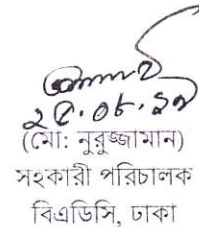 ২৫.০৮.১৯
(মো: নুরুজ্জামান)
সহকারী পরিচালক
বিএডিসি, ঢাকা